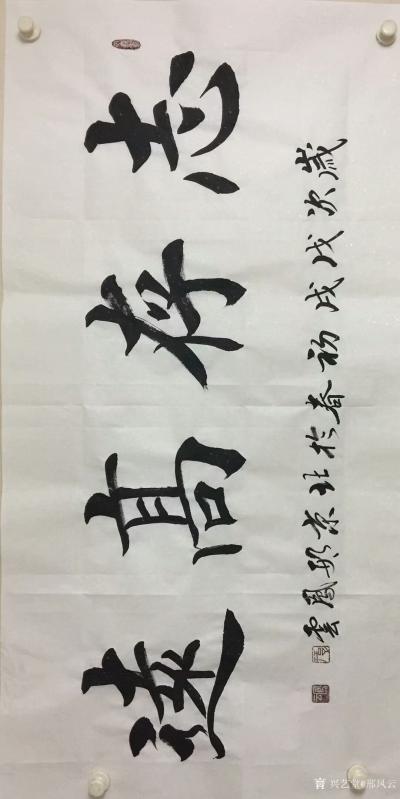 志存高遠
歲次戊戌初春於北京邢鳳雲
兴艺堂@邢风云